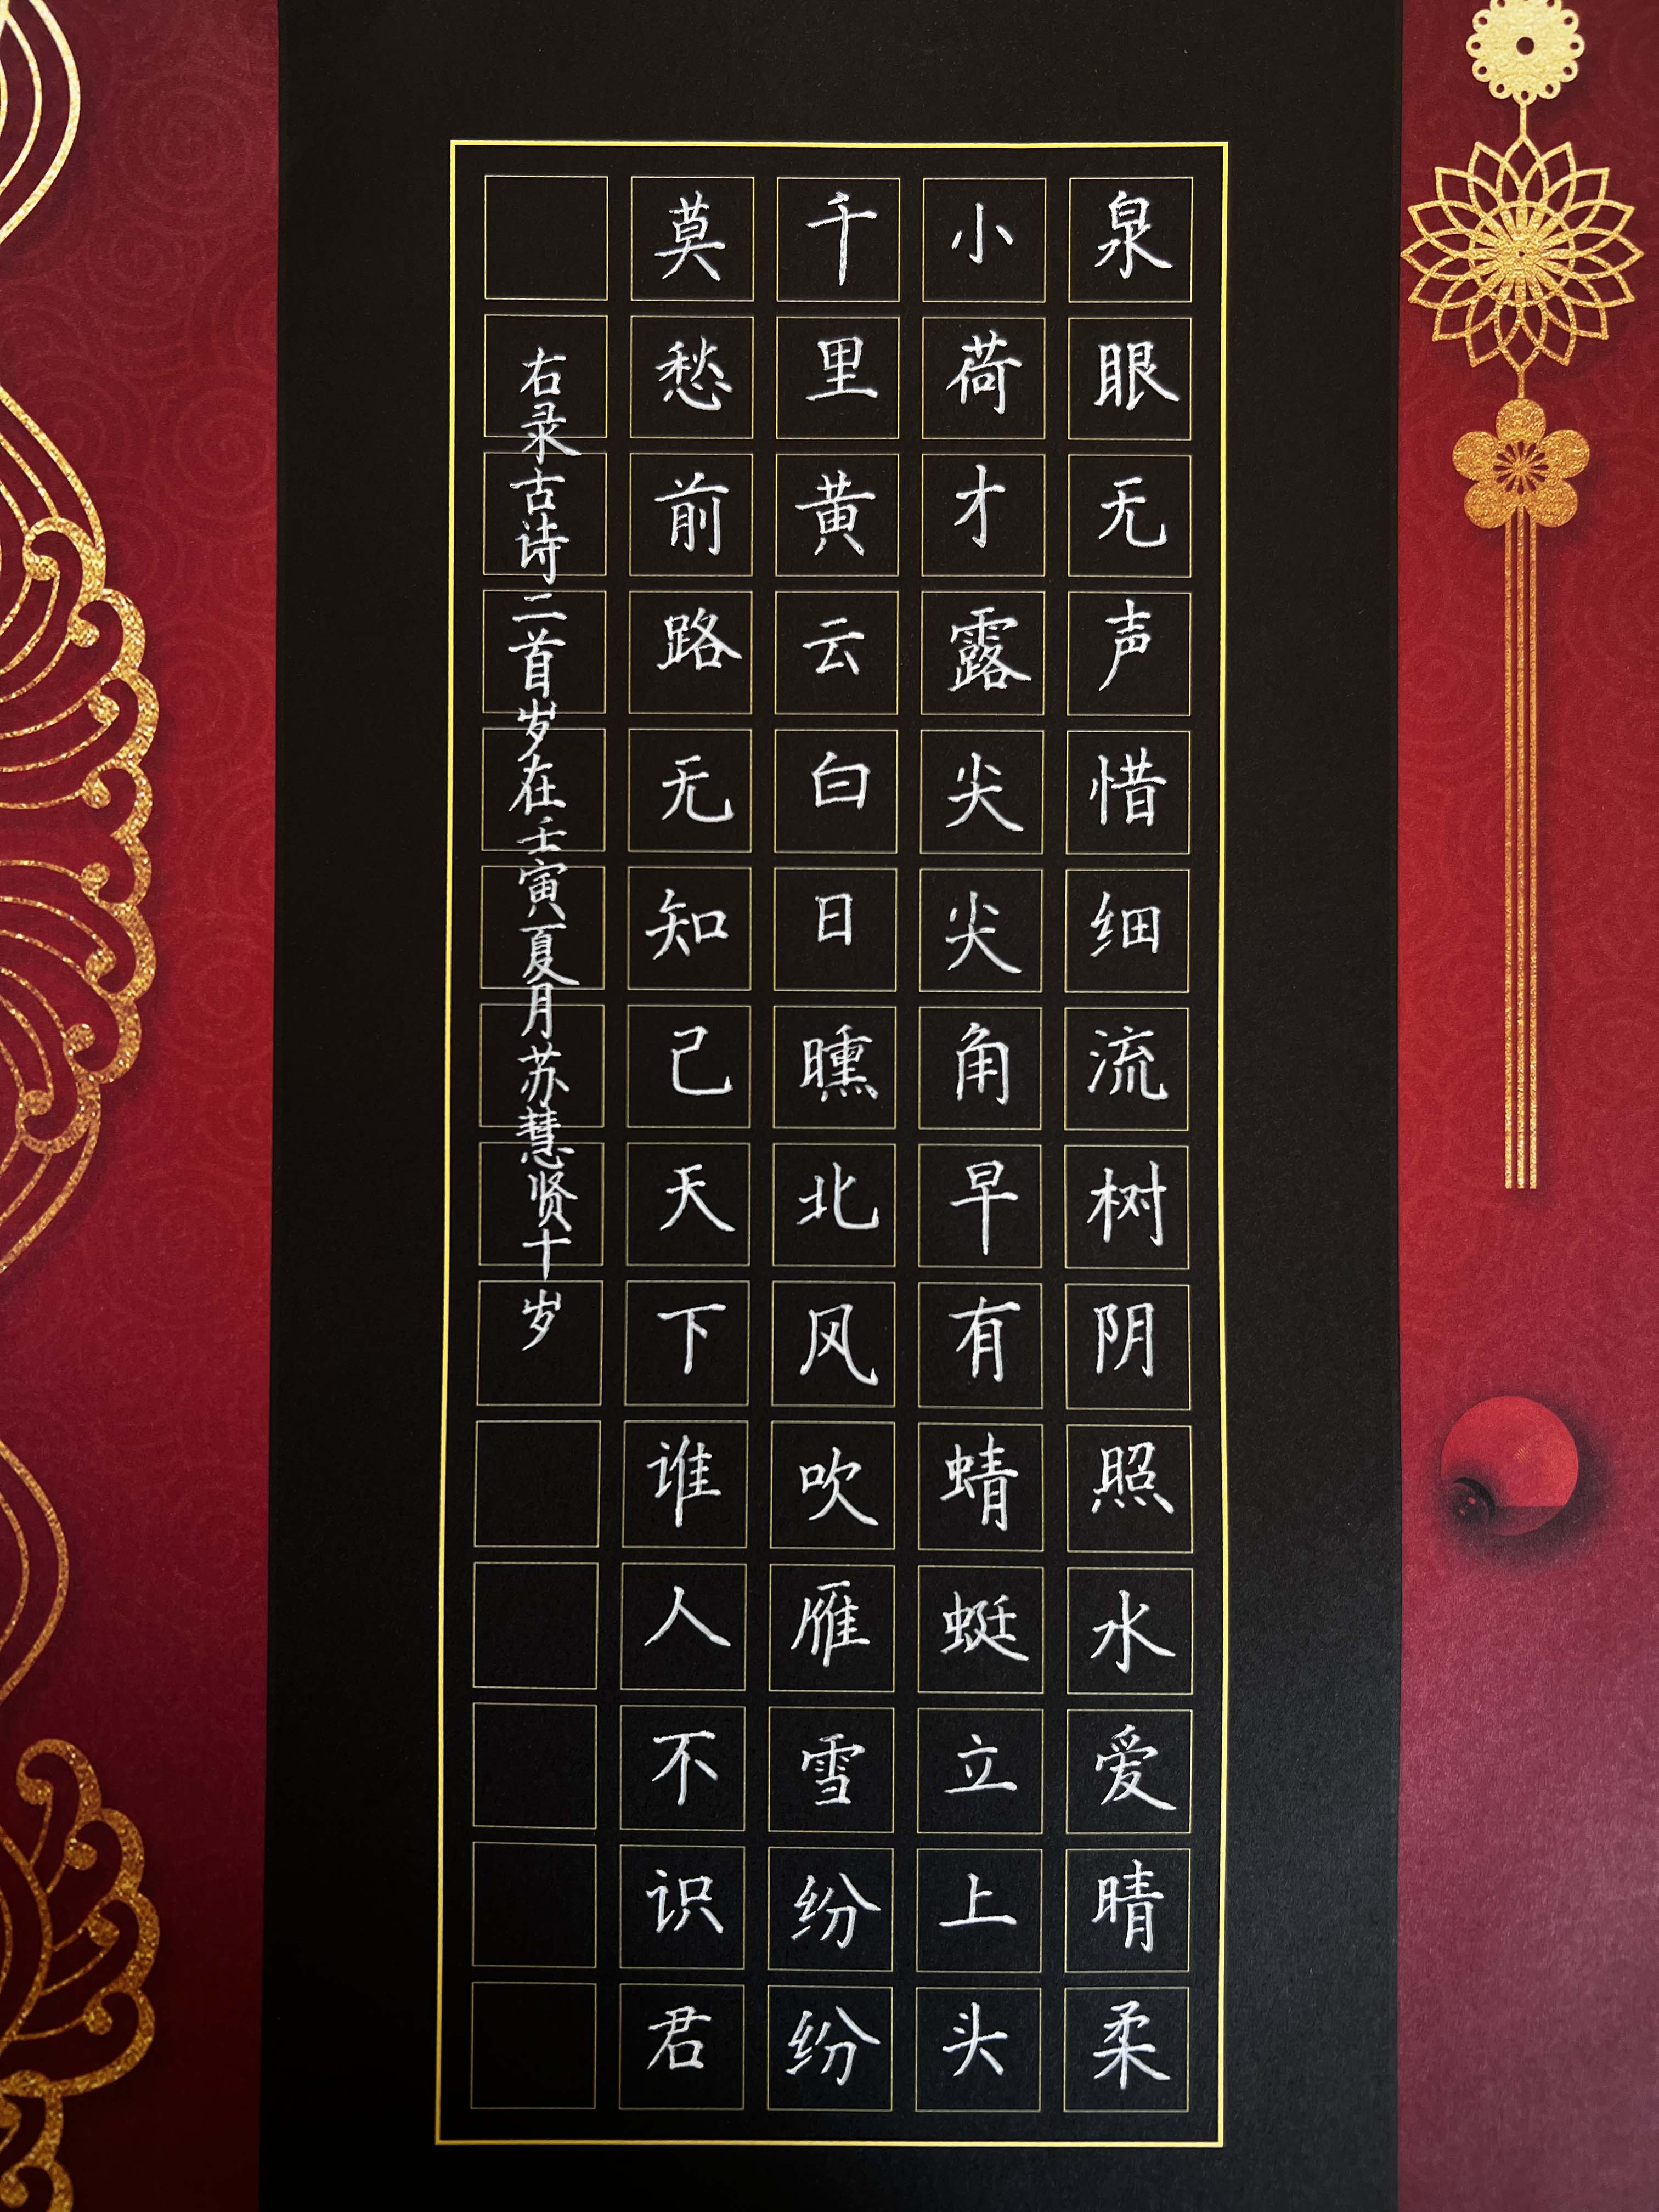 泉眼无声惜细流树阴照水爱晴柔
小荷才露尖尖角早有蜻蜓立上头
千里黄云白日曛北风吹雁雪纷纷
莫愁前路无知己天下谁人不识君
右录古诗二首岁在壬寅夏月苏慧贤十岁